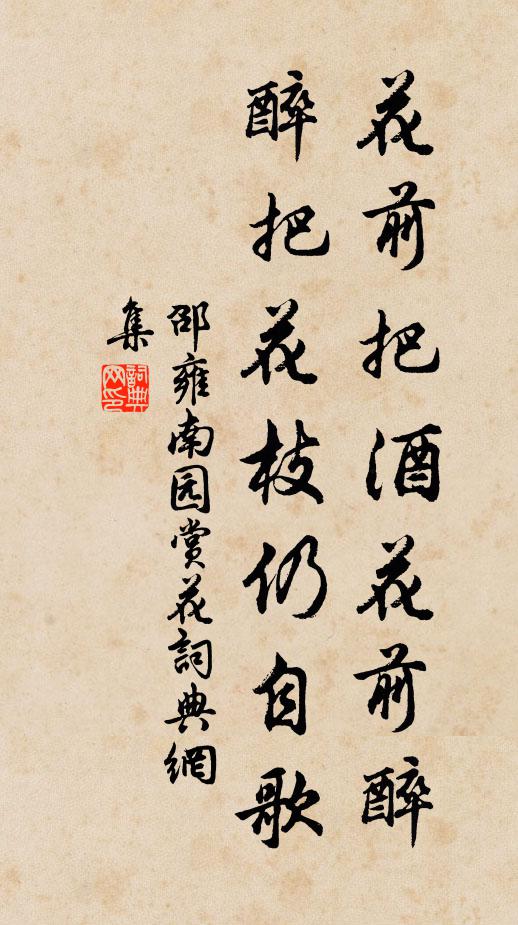 花前把酒花前醉
醉把花枝仍自歌
邵雍南园赏花詞典網
集
詞典
网印